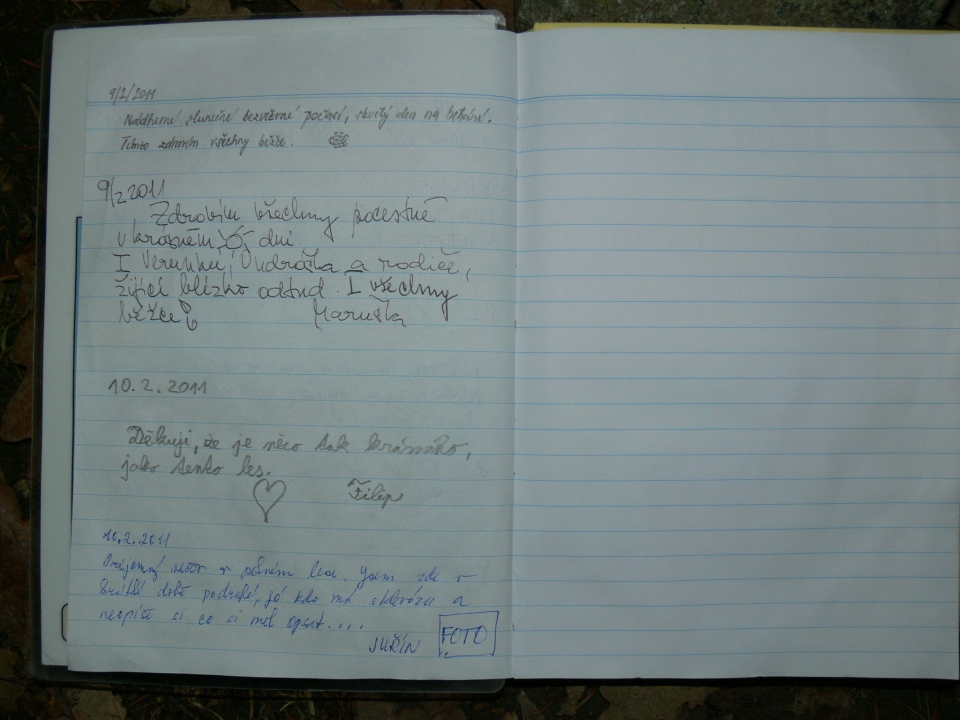 9/2/2011
Nádherné slunečné bezvětrné počasí, skvělý den na běhání.
Tímto zdravím všechny běžce.
9/2 2011
Zdravím všechny pocestné
v krásném dni
I Verunku, Ondráčka a rodiče,
žijící blízko odtud. I všechny
běžce! Maruška
10. 2. 2011
Děkuji, že je něco tak krásného,
jako tento les.
Filip
10.2.2011
Příjemný v pěkném lese. Jsem zde v
krátké době podruhé, já kdo má sklerózu a
neopíše si co si měl opsat....
JUŘÍN FOTO